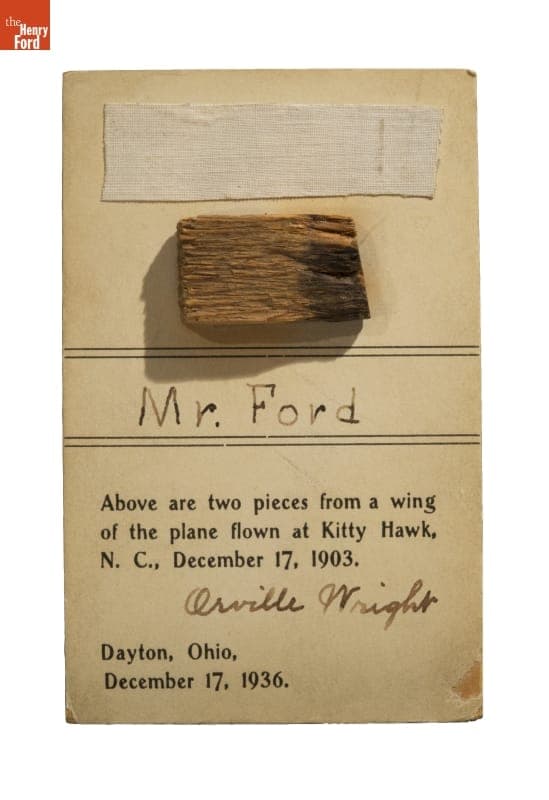 the
Henry
Ford
Mr. Ford
Above are two pieces from a wing
of the plane flown at Kitty Hawk,
N. C., December 17, 1903.
Orville Wright
Dayton, Ohio,
December 17, 1936.